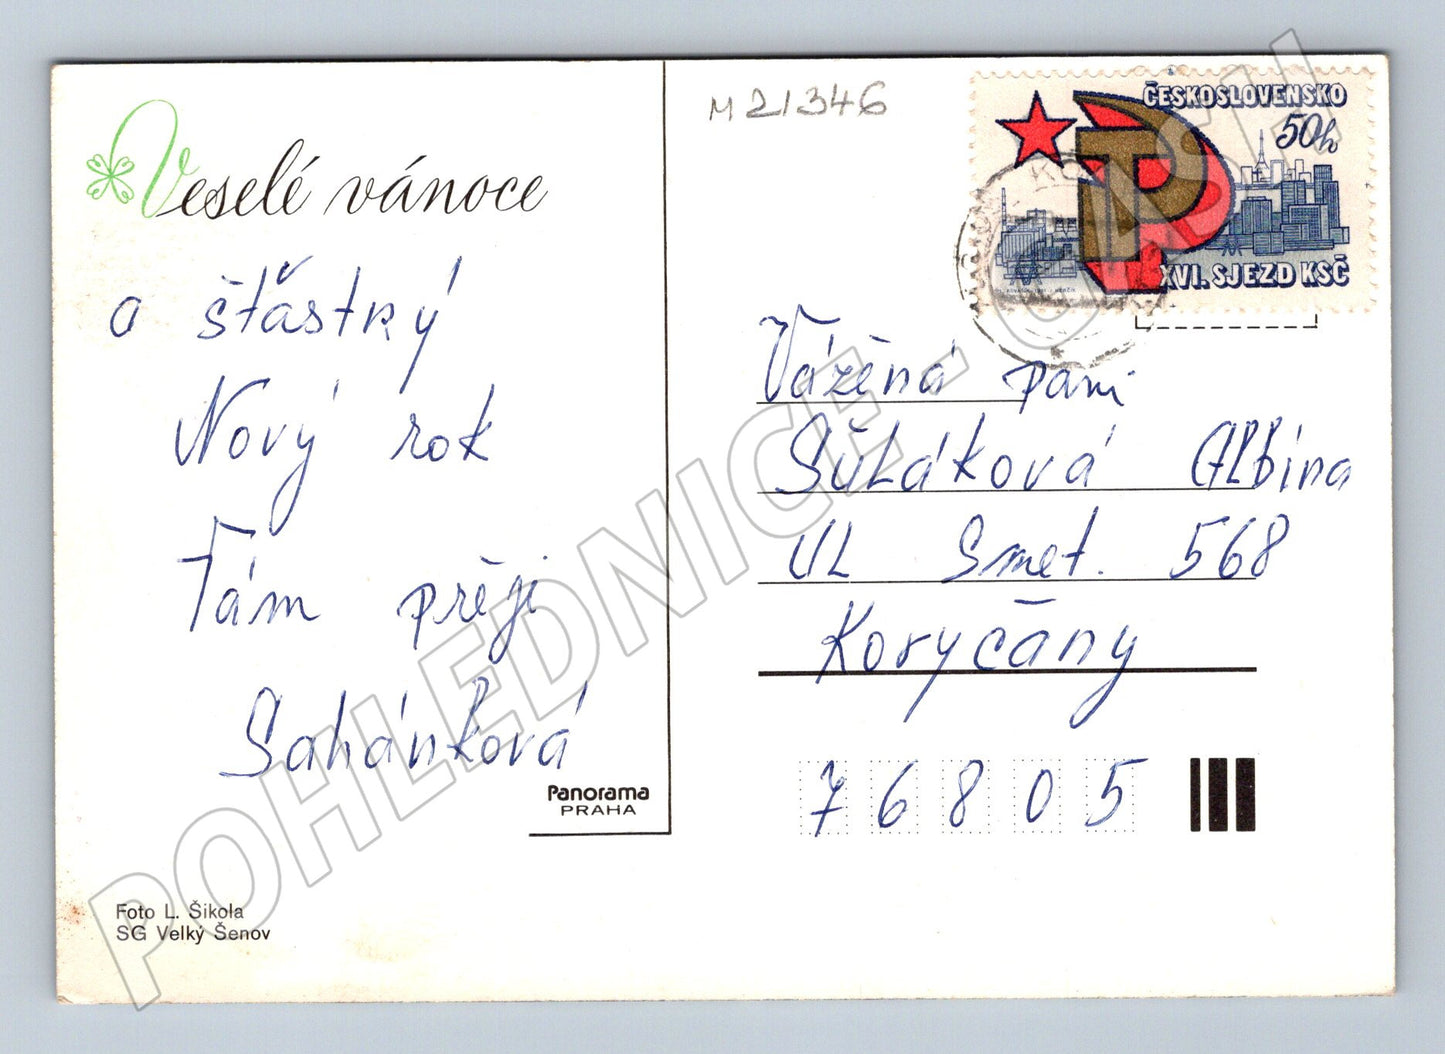 M 21346
ČESKOSLOVENSKO
50h
XVI. SJEZD KSČ
Veselé vánoce
a šťastný
Nový rok
Vám přeji
Sahánková
Panorama
PRAHA
Foto L. Šikola
SG Velký Šenov
Vážená paní
Šuláková Albina
UL Smet. 568
Koryčany
76805
POHLEDNICE - CASH